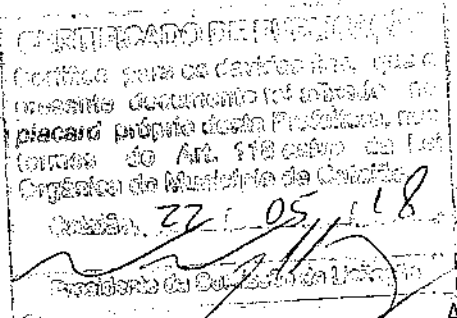 CERTIFICADO DE PUBLICAÇÃO
Certifico para os devidos fins, que o
presente documento foi afixado no
placard próprio desta Prefeitura, nos
termos do Art. 118 da Lei
Orgânica do Município de Catalão
Catalão, 22 / 05 / 18
Presidente da Comissão de Licitação